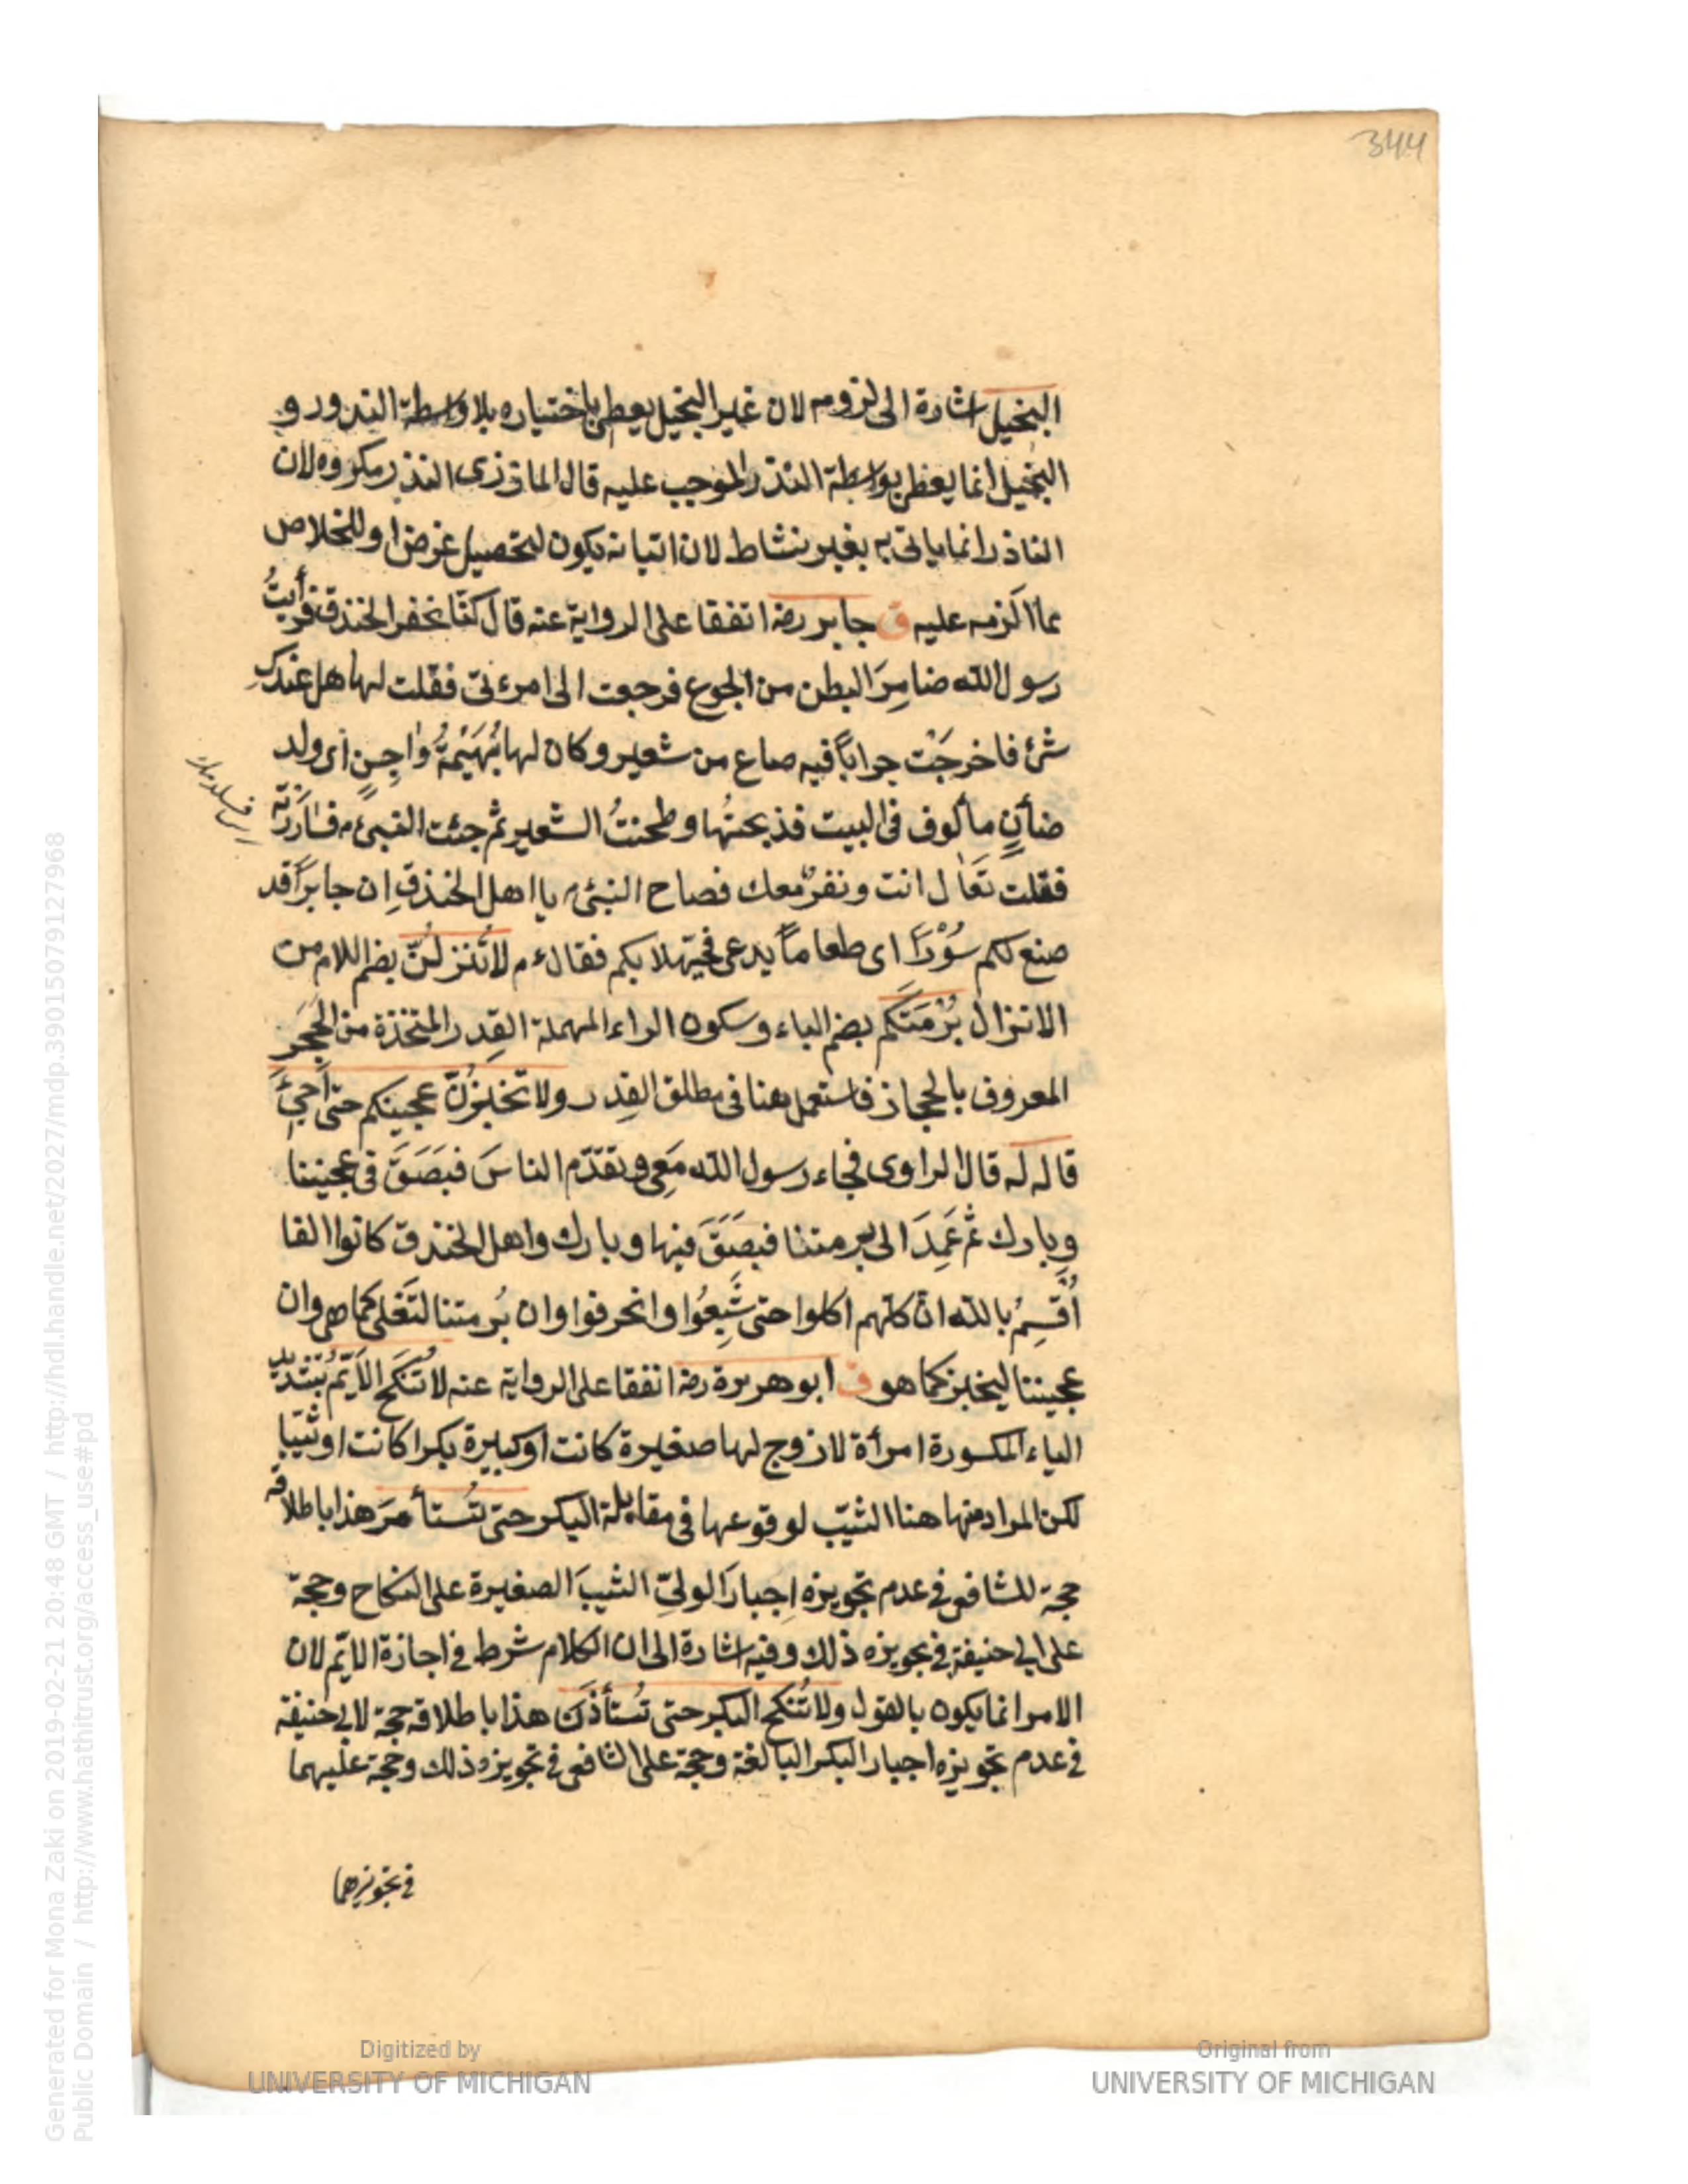 344
البخيل اشارة الى لزومه لان غير البخيل يعطى باختياره بلا واسطة النذور و
البخيل انما يعطى بواسطة النذر الموجب عليه قال الماذرى النذر مكروه لان
الناذر انما ياتى به بغير نشاط لان اتيانه يكون لتحصيل غرض او للخلاص
عما الزمه عليه ق جابر رضه اتفقا على الرواية عنه قال كنا نحفر الخندق فرأيتُ
رسول الله ضامِرَ البطن من الجوع فرجعت الى امرءتى فقلت لها هل عندكِ
شئ فاخرجَتْ جراباً فيه صاع من شعير وكان لها بُهَيْمَةُ داجِنٍ اى ولد
ضأنٍ مألوف فى البيت فذبحتُها وطحنتُ الشعير ثم جئت النبىء م فساررته
فقلت تعال انت ونفرٌ معك فصاح النبىء م يا اهل الخندقِ ان جابراً قد
صنع لكم سُؤْرًا اى طعاماً يدعى فحيّهلا بكم فقال ء م لا تُنزلُنّ بضم اللام من
الانزال بُرْمَتَكم بضم الباء وسكون الراء المهملة القِدر المتخذة من الحَجَرِ
المعروف بالحجاز فاستعمل هنا فى مطلق القِدر ولا تخبزُنّ عجينكم حتى اَجِئَ
قاله له قال الراوى فجاء رسول الله مَعِى وتقدّم الناسَ فبَصَقَ فى عجيننا
وبارك ثم عَمِدَ الى برمتنا فبصَقَ فيها وبارك واهل الخندق كانوا الفا
اُقسِمُ بالله انّ كلهم اكلوا حتى شَبِعُوا وانحرفوا وان بُرمتنا لتَغلى كما هى وان
عجيننا ليخبز كما هو ق ابو هريرة رضه اتفقا على الرواية عنه لا تُنكَح الاَيّم بتشديد
الياء المكسورة امرأة لا زوج لها صغيرة كانت او كبيرة بكرا كانت او ثيّبا
لكن المراد منها هنا الثيّب لوقوعها فى مقابلة البكر حتى تُستأمرَ هذا باطلاقه
حجة للشافعى فى عدم تجويزه اِجبارَ الولىّ الثيبَ الصغيرة على النكاح وحجة
على ابى حنيفة فى تجويزه ذلك وفيه اشارة الى ان الكلام شرط فى اجازة الايّم لان
الامر انما يكون بالقول ولا تُنكَح البكر حتى تُستأذنَ هذا باطلاقه حجة لابى حنيفة
فى عدم تجويزه اجبار البكر البالغة وحجة على الشافعى فى تجويزه ذلك وحجة عليهما
فى تجويزهما
Digitized by
UNIVERSITY OF MICHIGAN
Original from
UNIVERSITY OF MICHIGAN
Generated for Mona Zaki on 2019-02-21 20:48 GMT / http://hdl.handle.net/2027/mdp.39015079127968
Public Domain / http://www.hathitrust.org/access_use#pd